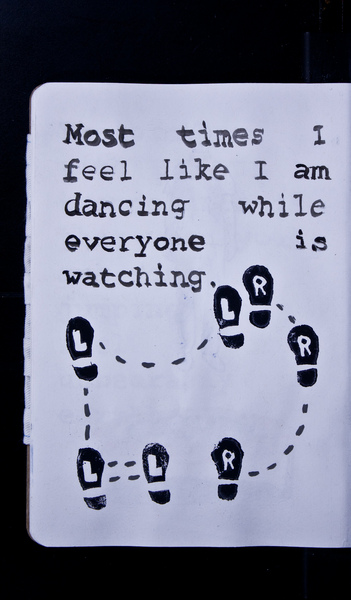 Most times I
feel like I am
dancing while
everyone is
watching.
L R
L R
L L R